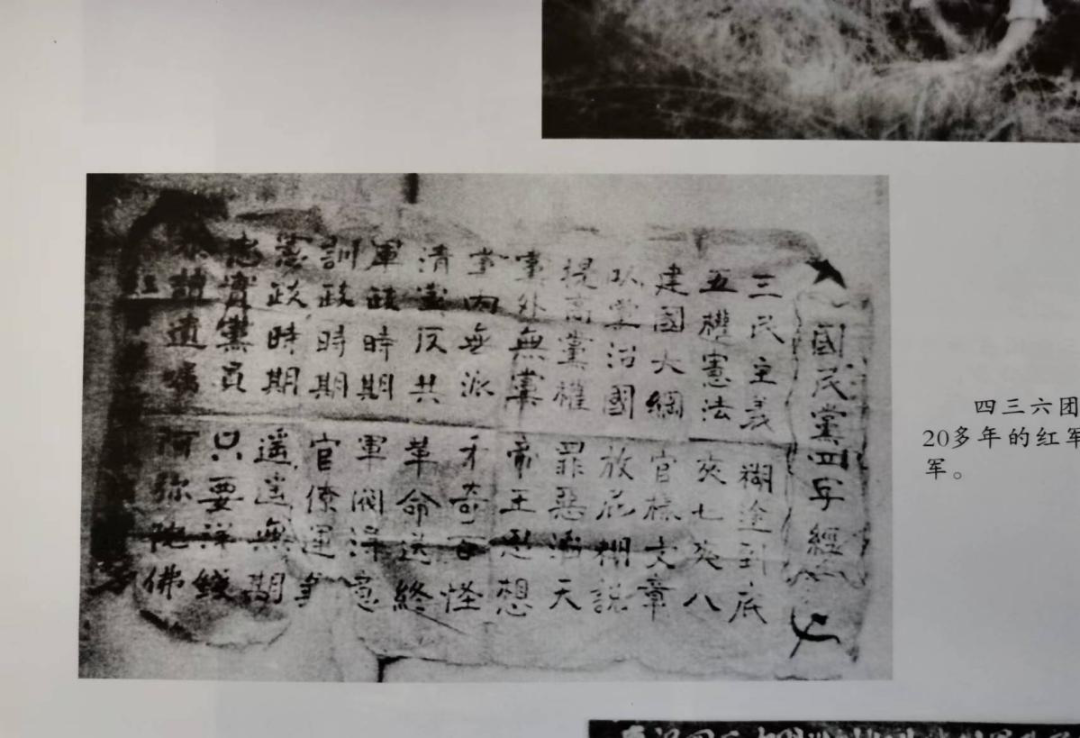 國民黨四字經
三民主義 糊塗到底
五權憲法 夾七夾八
建國大綱 官樣文章
以黨治國 放屁糊説
提高黨權 罪惡滔天
黨外無黨 帝王思想
黨内無派 千奇百怪
清黨反共 革命送終
軍政時期 軍閥得意
訓政時期 官僚運
憲政時期 遥遥無期
忠實黨員 只要洋錢
讀遺囑 阿弥陀佛
四三六团
20多年的红军
军。